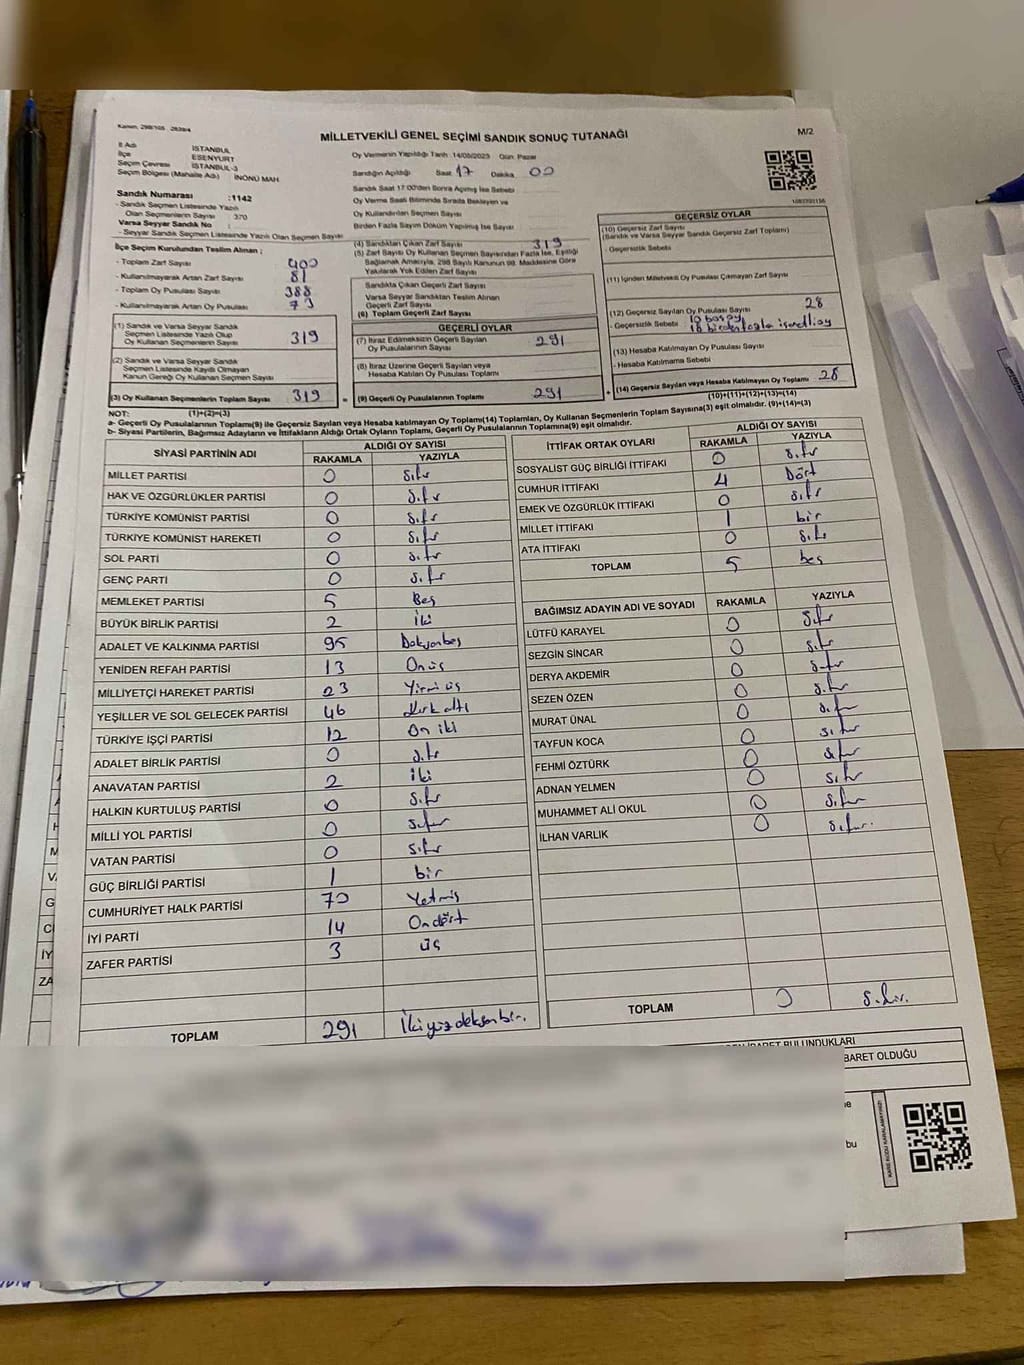 Kanun: 298/105 2839/4
MİLLETVEKİLİ GENEL SEÇİMİ SANDIK SONUÇ TUTANAĞI
M/2
İl Adı İSTANBUL
İlçe ESENYURT
Seçim Çevresi İSTANBUL-3
Seçim Bölgesi (Mahalle Adı) İNÖNÜ MAH
Oy Vermenin Yapıldığı Tarih :14/05/2023 Gün: Pazar
Sandığın Açıldığı Saat 17 Dakika 00
Sandık Saat 17:00'den Sonra Açılmış İse Sebebi
Oy Verme Saati Bitiminde Sırada Bekleyen ve
Oy Kullandırılan Seçmen Sayısı
Birden Fazla Sayım Döküm Yapılmış İse Sayısı
Sandık Numarası :1142
- Sandık Seçmen Listesinde Yazılı
Olan Seçmenlerin Sayısı : 370
Varsa Seyyar Sandık No :
- Seyyar Sandık Seçmen Listesinde Yazılı Olan Seçmen Sayısı
İlçe Seçim Kurulundan Teslim Alınan ;
- Toplam Zarf Sayısı 400
- Kullanılmayarak Artan Zarf Sayısı 81
- Toplam Oy Pusulası Sayısı 388
- Kullanılmayarak Artan Oy Pusulası 73
(1) Sandık ve Varsa Seyyar Sandık
Seçmen Listesinde Yazılı Olup
Oy Kullanan Seçmenlerin Sayısı 319
(2) Sandık ve Varsa Seyyar Sandık
Seçmen Listesinde Kaydı Olmayan
Kanun Gereği Oy Kullanan Seçmen Sayısı
(3) Oy Kullanan Seçmenlerin Toplam Sayısı 319 =
(4) Sandıktan Çıkan Zarf Sayısı 319
(5) Zarf Sayısı Oy Kullanan Seçmen Sayısından Fazla İse, Eşitliği
Sağlamak Amacıyla, 298 Sayılı Kanunun 98. Maddesine Göre
Yakılarak Yok Edilen Zarf Sayısı
Sandıkta Çıkan Geçerli Zarf Sayısı
Varsa Seyyar Sandıktan Teslim Alınan
Geçerli Zarf Sayısı
(6) Toplam Geçerli Zarf Sayısı
GEÇERLİ OYLAR
(7) İtiraz Edilmeksizin Geçerli Sayılan
Oy Pusulalarının Sayısı 291
(8) İtiraz Üzerine Geçerli Sayılan veya
Hesaba Katılan Oy Pusulası Toplamı
(9) Geçerli Oy Pusulalarının Toplamı 291 +
GEÇERSİZ OYLAR
(10) Geçersiz Zarf Sayısı
(Sandık ve Varsa Seyyar Sandık Geçersiz Zarf Toplamı)
- Geçersizlik Sebebi
(11) İçinden Milletvekili Oy Pusulası Çıkmayan Zarf Sayısı
(12) Geçersiz Sayılan Oy Pusulası Sayısı 28
- Geçersizlik Sebebi 10 boş oy
18 birden fazla işaretli oy
(13) Hesaba Katılmayan Oy Pusulası Sayısı
- Hesaba Katılmama Sebebi
(14) Geçersiz Sayılan veya Hesaba Katılmayan Oy Toplamı 28
(10)+(11)+(12)+(13)=(14)
NOT: (1)+(2)=(3)
a- Geçerli Oy Pusulalarının Toplamı(9) ile Geçersiz Sayılan veya Hesaba katılmayan Oy Toplamı(14) Toplamları, Oy Kullanan Seçmenlerin Toplam Sayısına(3) eşit olmalıdır. (9)+(14)=(3)
b- Siyasi Partilerin, Bağımsız Adayların ve İttifakların Aldığı Ortak Oyların Toplamı, Geçerli Oy Pusulalarının Toplamına(9) eşit olmalıdır.
SİYASİ PARTİNİN ADI ALDIĞI OY SAYISI
RAKAMLA YAZIYLA
MİLLET PARTİSİ 0 Sıfır
HAK VE ÖZGÜRLÜKLER PARTİSİ 0 Sıfır
TÜRKİYE KOMÜNİST PARTİSİ 0 Sıfır
TÜRKİYE KOMÜNİST HAREKETİ 0 Sıfır
SOL PARTİ 0 Sıfır
GENÇ PARTİ 0 Sıfır
MEMLEKET PARTİSİ 5 Beş
BÜYÜK BİRLİK PARTİSİ 2 İki
ADALET VE KALKINMA PARTİSİ 95 Doksanbeş
YENİDEN REFAH PARTİSİ 13 Onüç
MİLLİYETÇİ HAREKET PARTİSİ 23 Yirmi üç
YEŞİLLER VE SOL GELECEK PARTİSİ 46 Kırk altı
TÜRKİYE İŞÇİ PARTİSİ 12 On iki
ADALET BİRLİK PARTİSİ 0 Sıfır
ANAVATAN PARTİSİ 2 İki
HALKIN KURTULUŞ PARTİSİ 0 Sıfır
MİLLİ YOL PARTİSİ 0 Sıfır
VATAN PARTİSİ 0 Sıfır
GÜÇ BİRLİĞİ PARTİSİ 1 bir
CUMHURİYET HALK PARTİSİ 70 Yetmiş
İYİ PARTİ 14 Ondört
ZAFER PARTİSİ 3 üç
TOPLAM 291 İkiyüzdoksanbir.
İTTİFAK ORTAK OYLARI ALDIĞI OY SAYISI
RAKAMLA YAZIYLA
SOSYALİST GÜÇ BİRLİĞİ İTTİFAKI 0 Sıfır
CUMHUR İTTİFAKI 4 Dört
EMEK VE ÖZGÜRLÜK İTTİFAKI 0 Sıfır
MİLLET İTTİFAKI 1 bir
ATA İTTİFAKI 0 Sıfır
TOPLAM 5 beş
BAĞIMSIZ ADAYIN ADI VE SOYADI RAKAMLA YAZIYLA
LÜTFÜ KARAYEL 0 Sıfır
SEZGİN SİNCAR 0 Sıfır
DERYA AKDEMİR 0 Sıfır
SEZEN ÖZEN 0 Sıfır
MURAT ÜNAL 0 Sıfır
TAYFUN KOCA 0 Sıfır
FEHMİ ÖZTÜRK 0 Sıfır
ADNAN YELMEN 0 Sıfır
MUHAMMET ALİ OKUL 0 Sıfır
İLHAN VARLIK 0 Sıfır.
TOPLAM 0 Sıfır.
BULUNDUKLARI
BARET OLDUĞU
bu